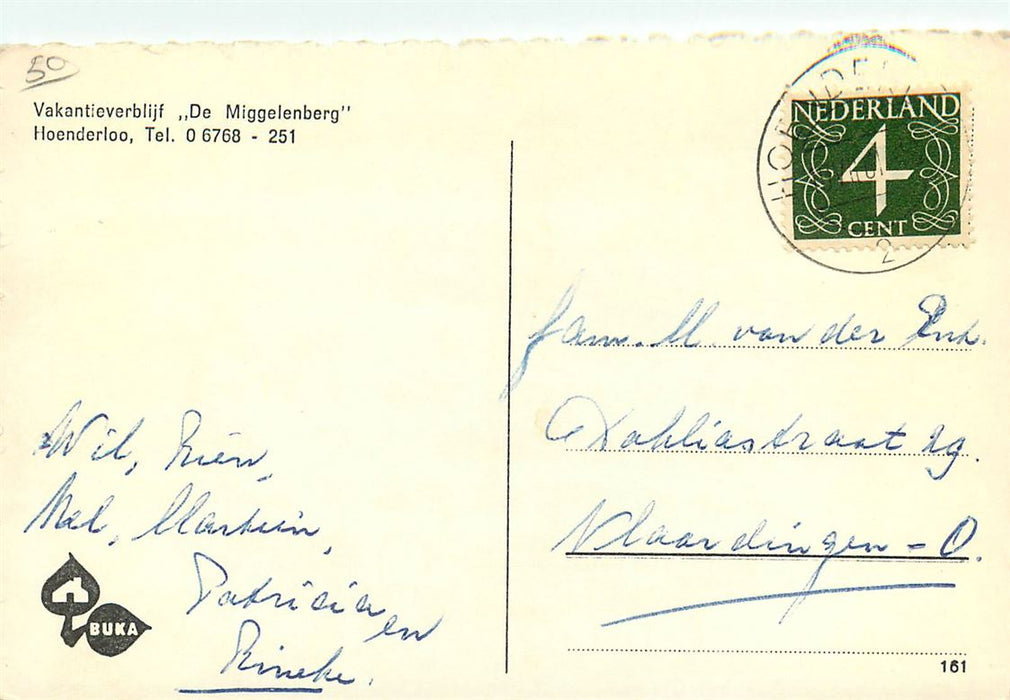 50
Vakantieverblijf „De Miggelenberg"
Hoenderloo, Tel. 0 6768 - 251
NEDERLAND
4
CENT
2
Wil, Rien,
Mel, Martin,
Patricia en
Rineke.
BUKA
fam. M. van der
Dahliastraat 29.
Vlaardingen - O.
161